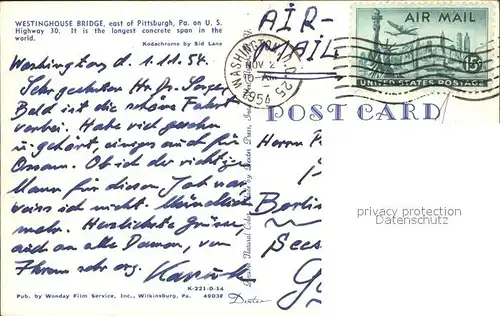 WESTINGHOUSE BRIDGE, east of Pittsburgh, Pa. on U. S.
Highway 30. It is the longest concrete span in the
world.
Kodachrome by Sid Lane
AIR-
MAIL
AIR MAIL
15¢
UNITED STATES POSTAGE
WASHINGTON, D.C. 25
NOV 2
10 AM
1954
POST CARD
Washington d. 1.11.54.
Sehr geehrter Hr. Dr.
Bald ist die schöne Fahrt
vorbei. Habe viel gesehen
u. gehört, einiges auch für
Ob ich der richtige
Mann für diesen Job war
weiss ich nicht. Mündlich
mehr. Herzlichste Grüsse,
auch an alle Damen, von
Ihrem sehr erg.
Herrn
Berlin
privacy protection
Datenschutz
K-221-D-14
Pub. by Wonday Film Service, Inc., Wilkinsburg, Pa. 49038
Dexter